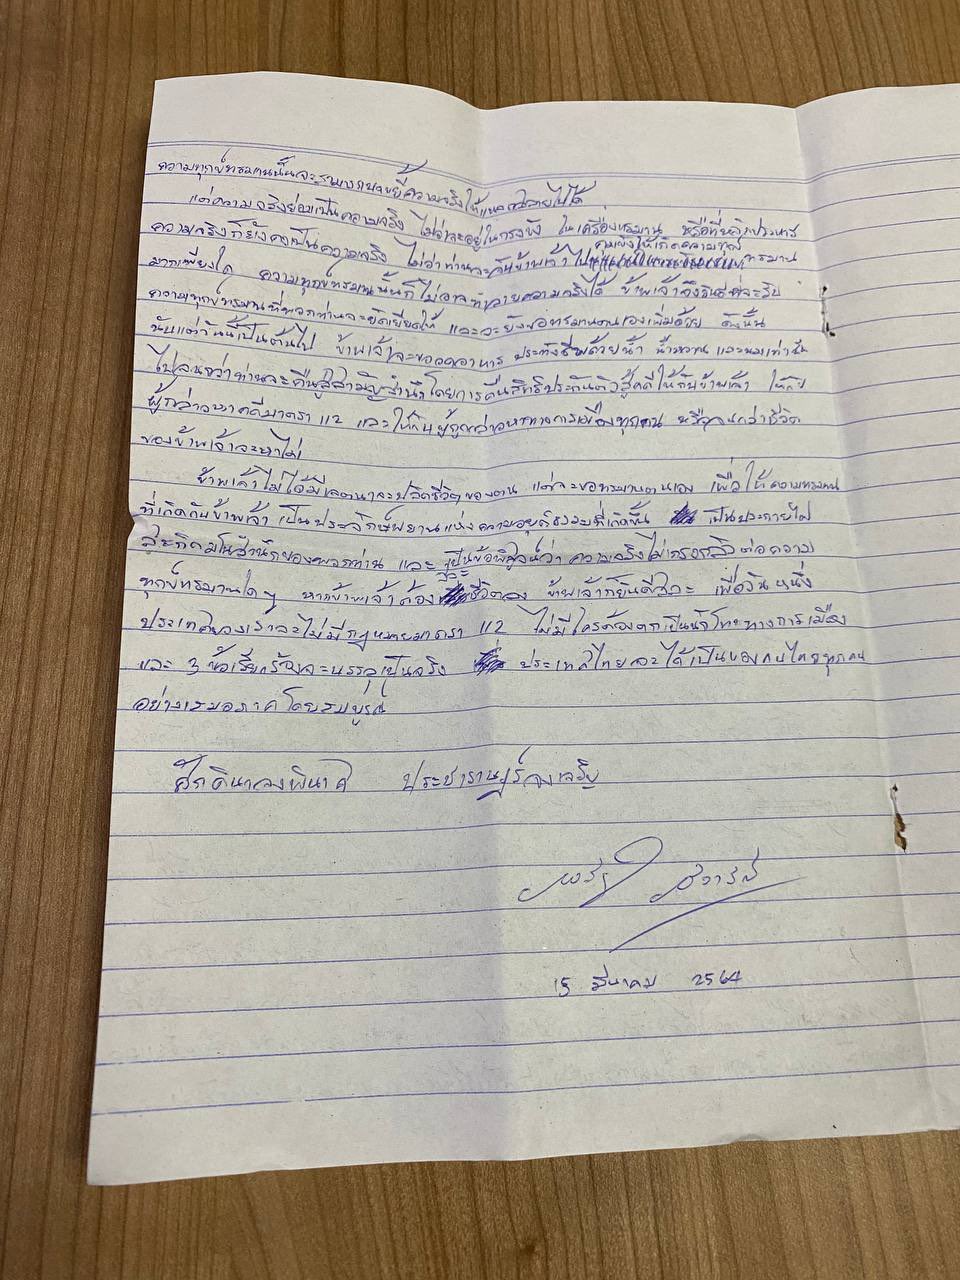 ความทุกข์ทรมานนั้นจะสามารถบดขยี้ความจริงให้แหลกสลายไปได้
แต่ความจริงย่อมเป็นความจริง ไม่ว่าจะอยู่ในกรงขัง ในเครื่องทรมาน หรือที่หลักประหาร
ความจริงก็ยังคงเป็นความจริง ไม่ว่าท่านจะคุมขังให้เกิดความทุกข์ทรมาน
มากเพียงใด ความทุกข์ทรมานนั้นก็ไม่อาจทำลายความจริงได้ ข้าพเจ้าจึงยินดีที่จะรับ
ความทุกข์ทรมานที่พวกท่านจะยัดเยียดให้ และจะยังขอทรมานตนเองเพิ่มด้วย ดังนั้น
นับแต่วันนี้เป็นต้นไป ข้าพเจ้าจะขออดอาหาร ประทังชีพด้วยน้ำ น้ำหวาน และนมเท่านั้น
ไปจนกว่าท่านจะคืนสู่สามัญสำนึกโดยการคืนสิทธิประกันตัวสู้คดีให้กับข้าพเจ้า ให้กับ
ผู้ถูกกล่าวหาคดีมาตรา 112 และให้กับผู้ถูกกล่าวหาทางการเมืองทุกคน หรือจนกว่าชีวิต
ของข้าพเจ้าจะหาไม่
ข้าพเจ้าไม่ได้มีเจตนาจะปลิดชีวิตของตน แต่จะขอทรมานตนเอง เพื่อให้ความทรมาน
ที่เกิดกับข้าพเจ้า เป็นประจักษ์พยานแห่งความอยุติธรรมที่เกิดขึ้น เป็นประกายไฟ
สะกิดมโนสำนึกของพวกท่าน และเป็นข้อพิสูจน์ว่า ความจริงไม่เกรงกลัวต่อความ
ทุกข์ทรมานใด ๆ หากข้าพเจ้าต้องสละชีวิตลง ข้าพเจ้าก็ยินดีสละ เพื่อวันหนึ่ง
ประเทศของเราจะไม่มีกฎหมายมาตรา 112 ไม่มีใครต้องตกเป็นนักโทษทางการเมือง
และ 3 ข้อเรียกร้องจะบรรลุเป็นจริง ประเทศไทยจะได้เป็นของคนไทยทุกคน
อย่างเสมอภาคโดยสมบูรณ์
ศักดินาจงพินาศ ประชาราษฎร์จงเจริญ
พริษฐ์ ชิวารักษ์
15 มีนาคม 2564